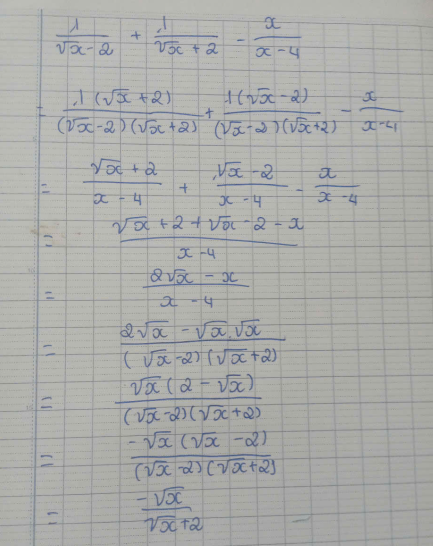 1/(√x-2) + 1/(√x+2) - x/(x-4)
= 1(√x+2)/((√x-2)(√x+2)) + 1(√x-2)/((√x-2)(√x+2)) - x/(x-4)
= (√x+2)/(x-4) + (√x-2)/(x-4) - x/(x-4)
= (√x+2+√x-2-x)/(x-4)
= (2√x-x)/(x-4)
= (2√x-√x.√x)/((√x-2)(√x+2))
= √x(2-√x)/((√x-2)(√x+2))
= -√x(√x-2)/((√x-2)(√x+2))
= -√x/(√x+2)